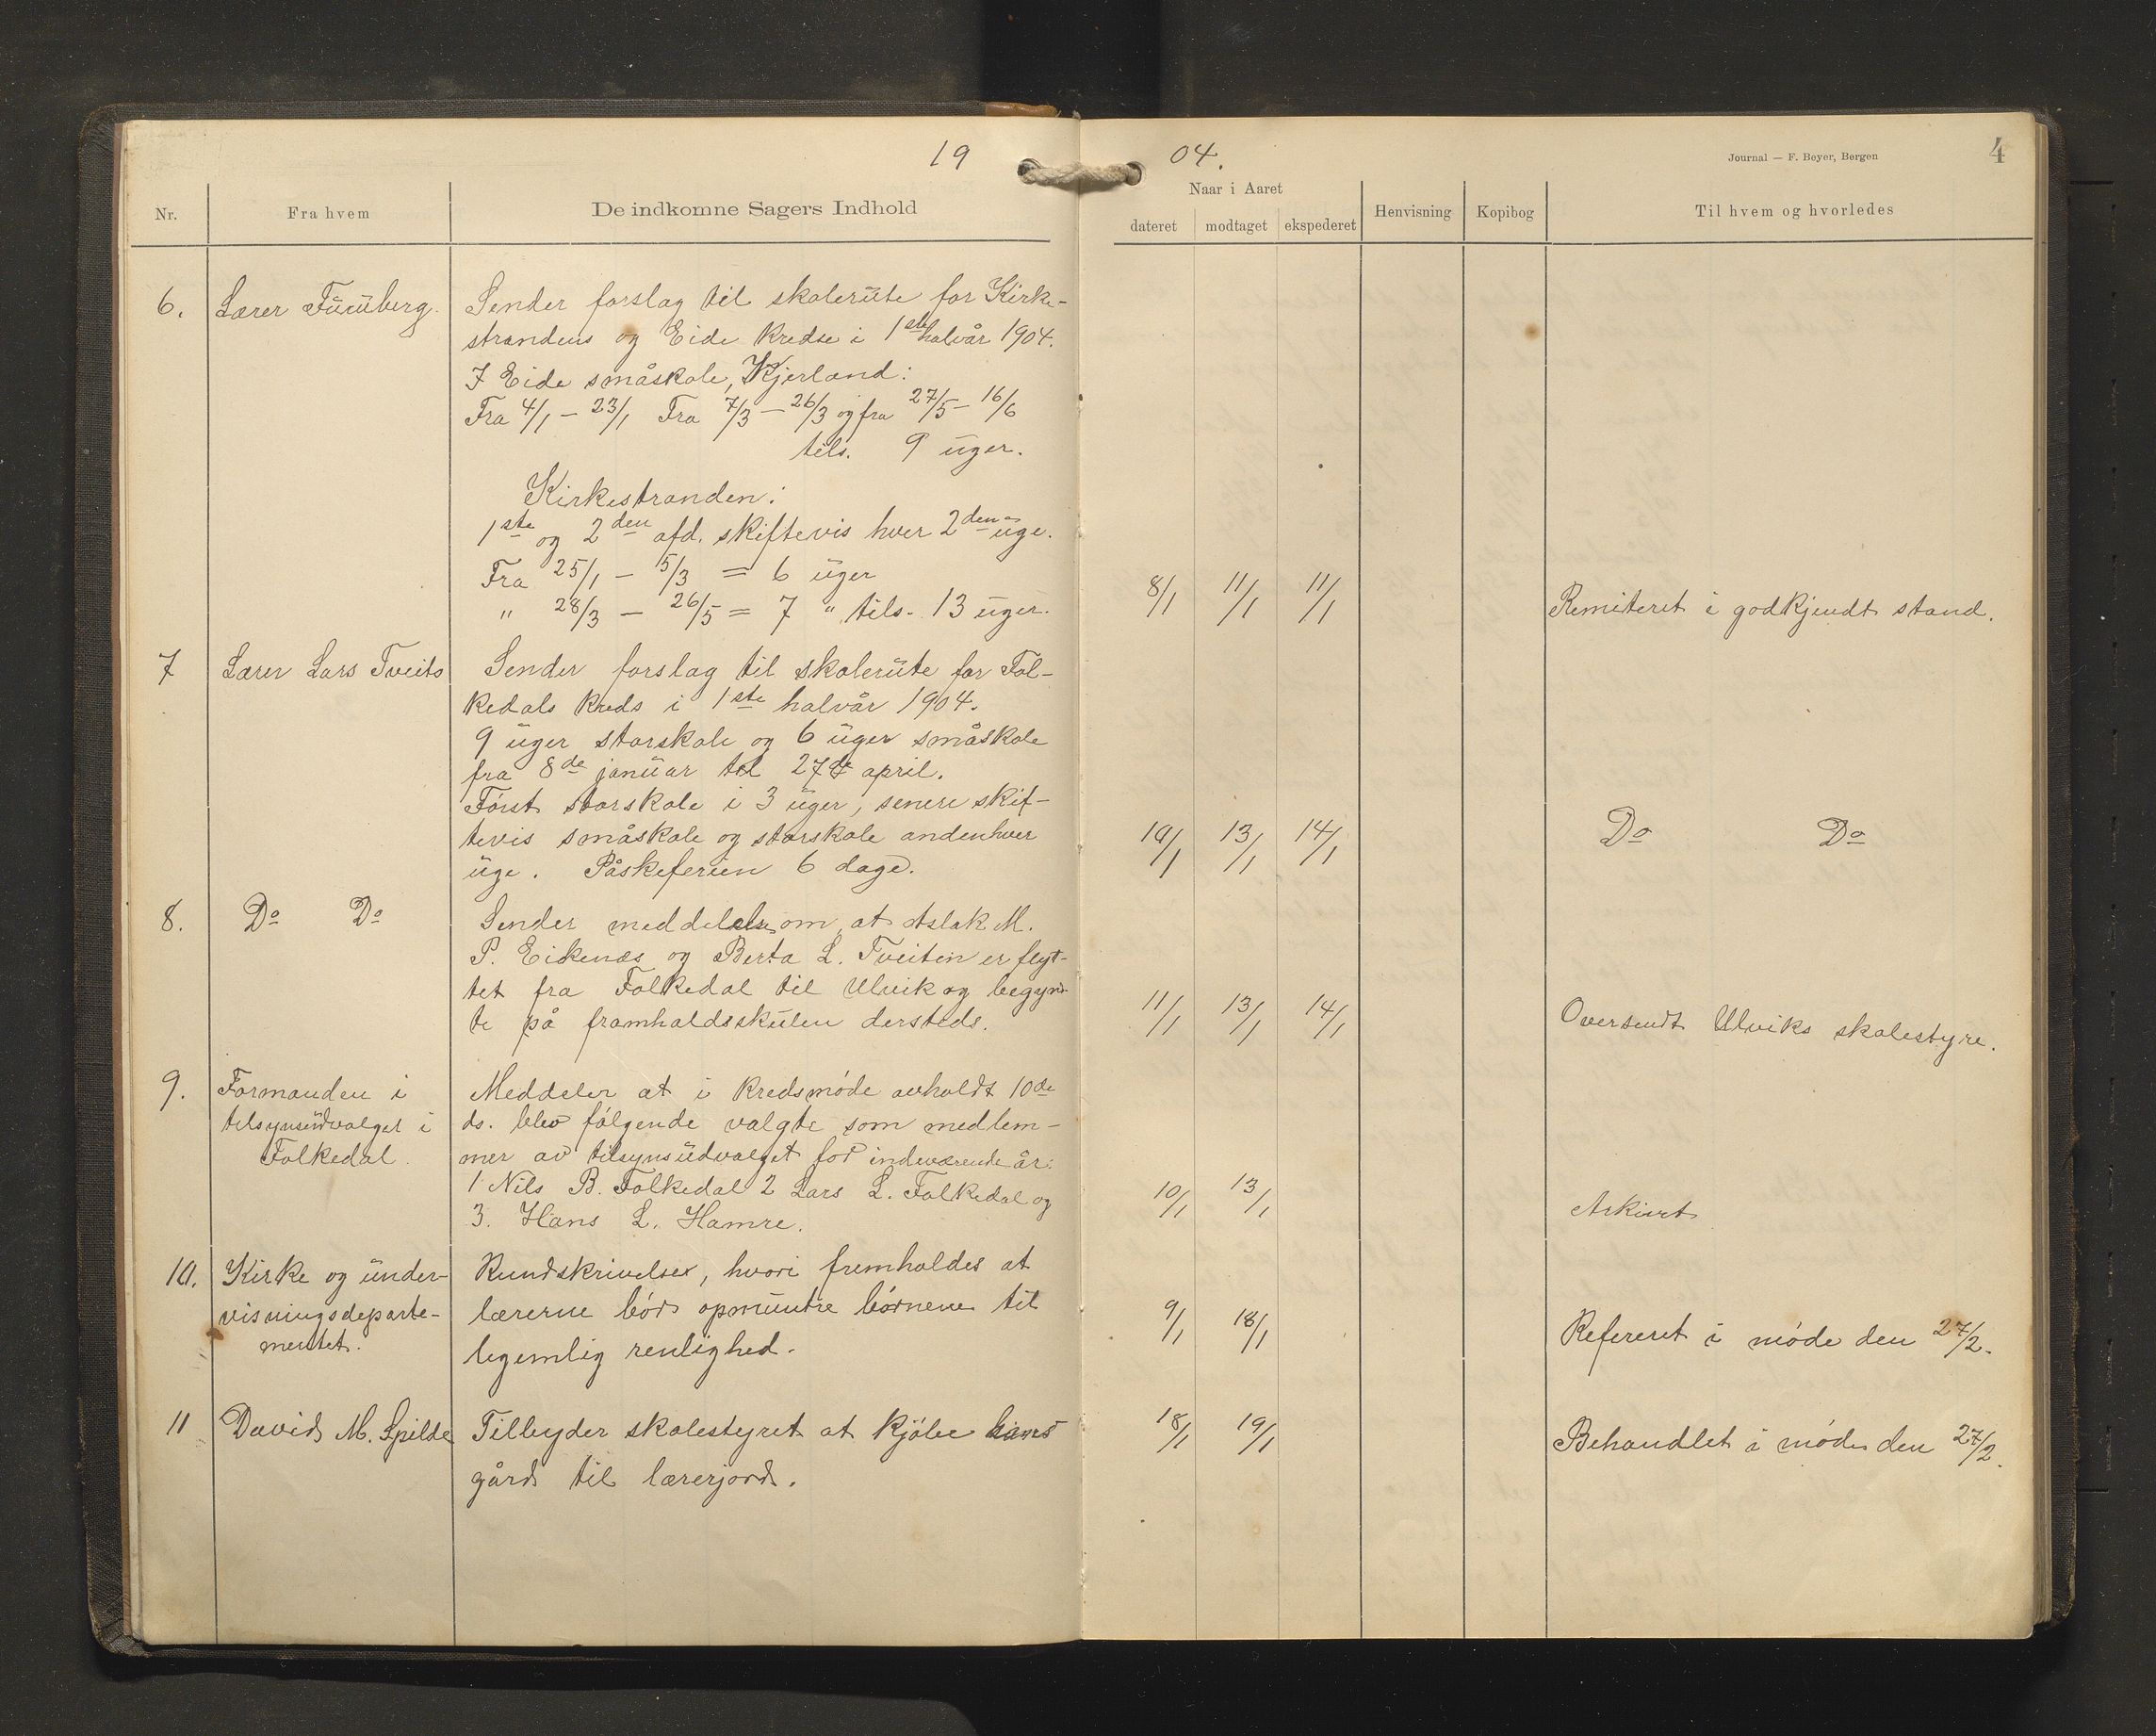 19 04.
Journal — F. Beyer, Bergen 4
Nr. Fra hvem De indkomne Sagers Indhold
Naar i Aaret
dateret modtaget ekspederet Henvisning Kopibog Til hvem og hvorledes
6. Lærer Sender forslag til skolerüte for Kirke-
strandens og Eide kredse i 1ste halvår 1904.
I Eide småskole, Kjerland:
Fra 4/1 — 23/1 Fra 7/3 — 26/3 og fra 27/5 — 16/6
tils. 9 üger.
Kirkestranden:
1ste og 2den afd. skiftevis hver 2den üge.
Fra 25/1 — 5/3 = 6 üger
" 28/3 — 26/5 = 7 " tils. 13 üger. 8/1 11/1 11/1 Remiteret i godkjendt stand.
7 Lærer Lars Tveito Sender forslag til skolerüte for Fol-
kedals kreds i 1ste halvår 1904.
9 üger storskole og 6 üger småskole
fra 8de janüar til 27de april.
Først storskole i 3 üger, senere skif-
tevis småskole og storskole andenhver
üge. Påskeferien 6 dage. 10/1 13/1 14/1 Do Do
8. Do Do Sender meddelelse om, at Aslak M.
P. Eikenæs og Berta L. Tveiten er flyt-
tet fra Folkedal til Ulvik og begynd-
te på framhaldsskülen dersteds. 11/1 13/1 14/1 Oversendt Ulviks skolestyre.
9. Formanden i Meddeler at i kredsmøde avholdt 10de
tilsynsüdvalget i ds. blev følgende valgte som medlem-
Folkedal. mer av tilsynsüdvalget for indeværende år:
1 Nils B. Folkedal 2 Lars L. Folkedal og
3. Hans L. Hamre. 10/1 13/1 Arkivert
10. Kirke og ünder- Rundskrivelse, hvori fremholdes at
visningsdeparte- lærerne bør opmüntre børnene til
mentet. legemlig renlighed. 9/1 18/1 Refereret i møde den 27/2.
11 David M. Spilde Tilbyder skolestyret at kjøbe hans
gård til lærerjord. 18/1 19/1 Behandlet i møde den 27/2.